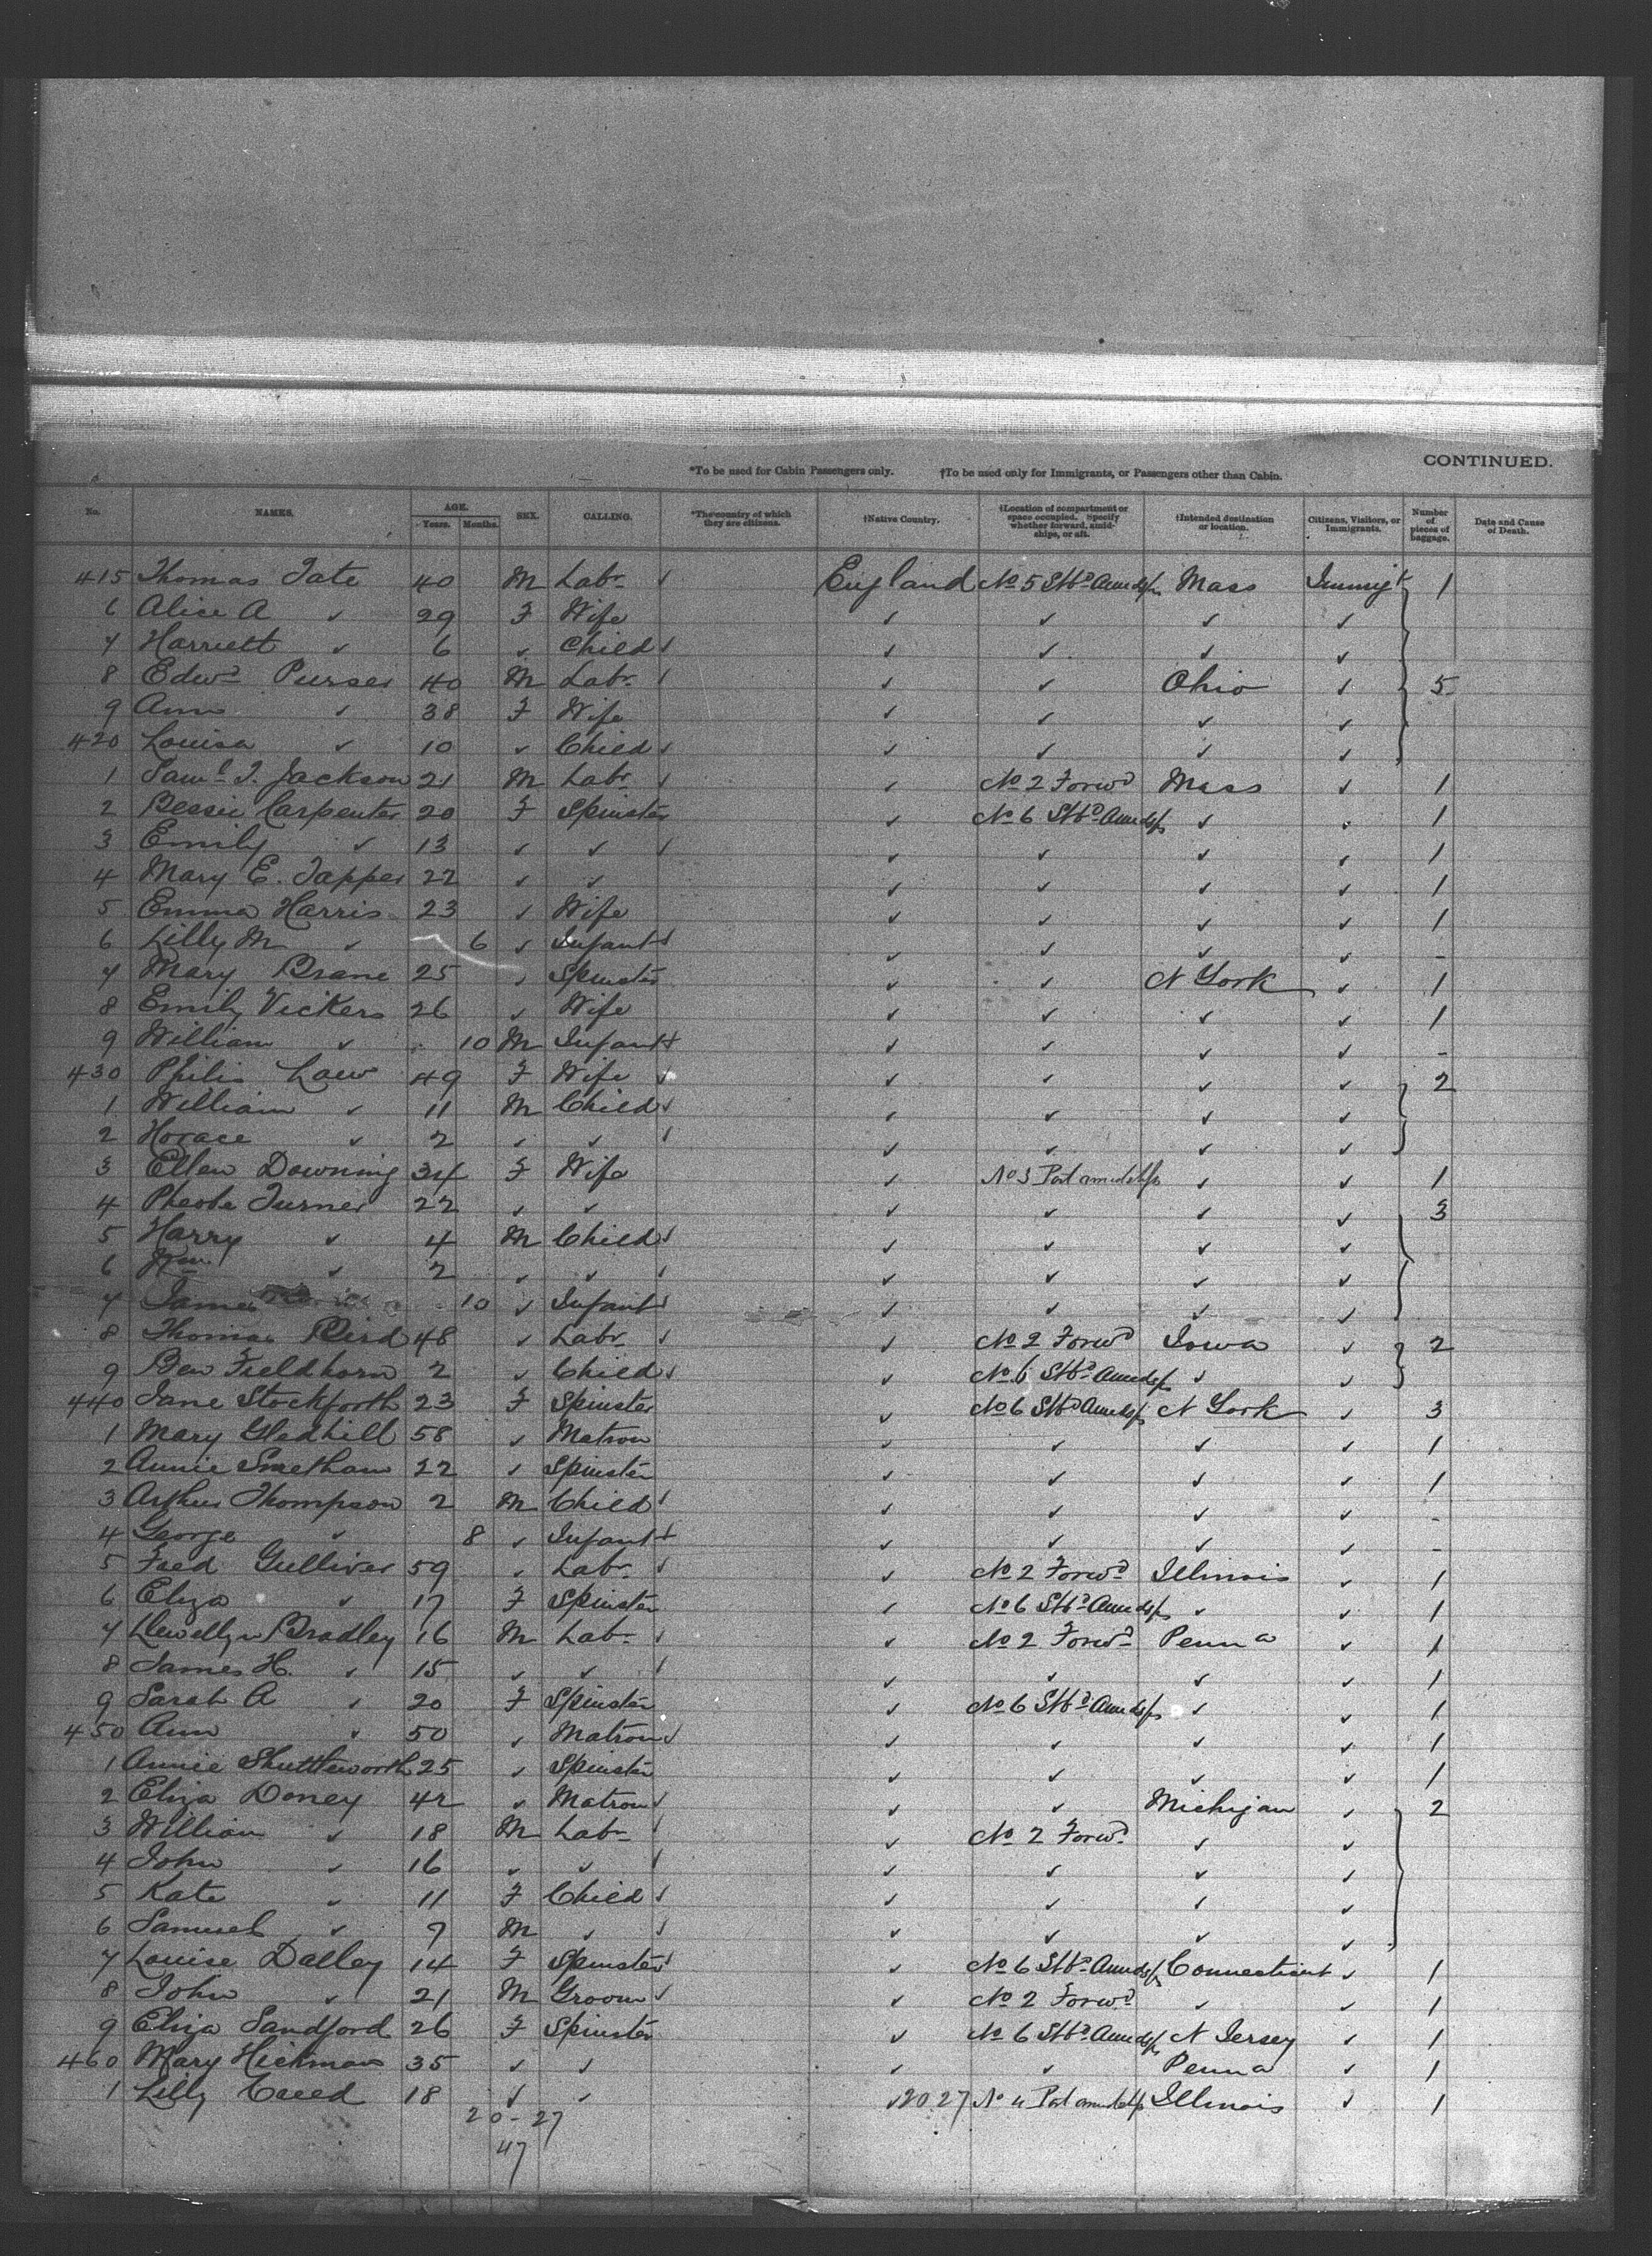 CONTINUED.
*To be used for Cabin Passengers only. †To be used only for Immigrants, or Passengers other than Cabin.
No. NAMES. AGE. Years. Months. SEX. CALLING. *The country of which they are citizens. †Native Country. †Location of compartment or space occupied. Specify whether forward, amidships, or aft. †Intended destination or location. Citizens, Visitors, or Immigrants. Number of pieces of baggage. Date and Cause of Death.
415 Thomas Tate 40 M Labr ✓ England No 5 Stbd Amidsps Mass Immigt 1
6 Alice A ✓ 29 F Wife ✓ ✓ ✓ ✓
7 Harriett ✓ 6 ✓ Child ✓ ✓ ✓ ✓ ✓
8 Edwd Purser 40 M Labr ✓ ✓ ✓ Ohio ✓ 5
9 Ann ✓ 38 F Wife ✓ ✓ ✓ ✓
420 Louisa ✓ 10 ✓ Child ✓ ✓ ✓ ✓ ✓
1 Saml T. Jackson 21 M Labr ✓ ✓ No 2 Forwd Mass ✓ 1
2 Bessie Carpenter 20 F Spinster ✓ No 6 Stbd Amidsps ✓ ✓ 1
3 Emily ✓ 13 ✓ ✓ ✓ ✓ ✓ ✓ ✓ 1
4 Mary E. Tapper 22 ✓ ✓ ✓ ✓ ✓ ✓ 1
5 Emma Harris 23 ✓ Wife ✓ ✓ ✓ ✓ 1
6 Lilly M ✓ 6 ✓ Infant ✓ ✓ ✓ ✓ ✓ -
7 Mary Brane 25 ✓ Spinster ✓ ✓ N York ✓ 1
8 Emily Vickers 26 ✓ Wife ✓ ✓ ✓ ✓ 1
9 William ✓ 10 M Infant ✓ ✓ ✓ ✓ ✓ -
430 Philis Law 49 F Wife ✓ ✓ ✓ ✓ ✓ 2
1 William ✓ 11 M Child ✓ ✓ ✓ ✓ ✓
2 Horace ✓ 2 ✓ ✓ ✓ ✓ ✓ ✓ ✓
3 Ellen Downing 34 F Wife ✓ No 3 Port amidships ✓ ✓ 1
4 Pheobe Turner 22 ✓ ✓ ✓ ✓ ✓ ✓ 3
5 Harry ✓ 4 M Child ✓ ✓ ✓ ✓ ✓
6 Wm ✓ 2 ✓ ✓ ✓ ✓ ✓ ✓ ✓
7 James 10 ✓ Infant ✓ ✓ ✓ ✓ ✓
8 Thomas Bird 48 ✓ Labr ✓ ✓ No 2 Forwd Iowa ✓ 2
9 Ben Fieldhorn 2 ✓ Child ✓ ✓ No 6 Stbd Amidsps ✓ ✓
440 Jane Stockforth 23 F Spinster ✓ No 6 Stbd Amidsps N York ✓ 3
1 Mary Gledhill 58 ✓ Matron ✓ ✓ ✓ ✓ 1
2 Annie Smetham 22 ✓ Spinster ✓ ✓ ✓ ✓ 1
3 Arthur Thompson 2 M Child ✓ ✓ ✓ ✓ ✓ -
4 George ✓ 8 ✓ Infant ✓ ✓ ✓ ✓ ✓ -
5 Fred Gulliver 59 ✓ Labr ✓ ✓ No 2 Forwd Illinois ✓ 1
6 Eliza ✓ 17 F Spinster ✓ No 6 Stbd Amidsps ✓ ✓ 1
7 Llewellyn Bradley 16 M Labr ✓ ✓ No 2 Forwd Penna ✓ 1
8 James H. ✓ 15 ✓ ✓ ✓ ✓ ✓ ✓ ✓ 1
9 Sarah A ✓ 20 F Spinster ✓ No 6 Stbd Amidsps ✓ ✓ 1
450 Ann ✓ 50 ✓ Matron ✓ ✓ ✓ ✓ ✓ 1
1 Annie Shuttleworth 25 ✓ Spinster ✓ ✓ ✓ ✓ 1
2 Eliza Doney 42 ✓ Matron ✓ ✓ ✓ Michigan ✓ 2
3 William ✓ 18 M Labr ✓ ✓ No 2 Forwd ✓ ✓
4 John ✓ 16 ✓ ✓ ✓ ✓ ✓ ✓ ✓
5 Kate ✓ 11 F Child ✓ ✓ ✓ ✓ ✓
6 Samuel ✓ 9 M ✓ ✓ ✓ ✓ ✓ ✓
7 Louise Dalley 14 F Spinster ✓ ✓ No 6 Stbd Amidsps Connecticut ✓ 1
8 John ✓ 21 M Groom ✓ ✓ No 2 Forwd ✓ ✓ 1
9 Eliza Sandford 26 F Spinster ✓ No 6 Stbd Amidsps N Jersey ✓ 1
460 Mary Hickman 35 ✓ ✓ ✓ ✓ Penna ✓ 1
1 Lilly Creed 18 ✓ ✓ ✓ 20 27 No 4 Port amidships Illinois ✓ 1
20-27
47